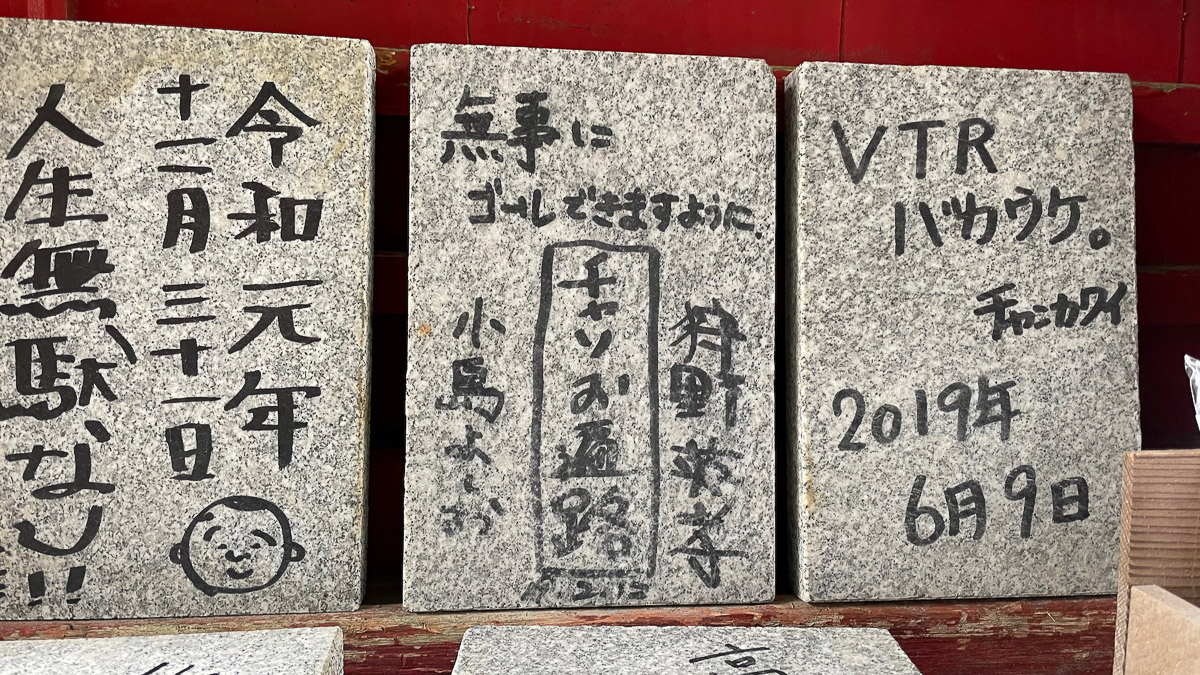 令和元年
十二月三十一日
人生無駄なし!!
無事に
ゴールできますように、
狩野英孝
チャリお遍路
小島よしお
VTR
バカウケ。
チャンカワイ
2019年
6月9日